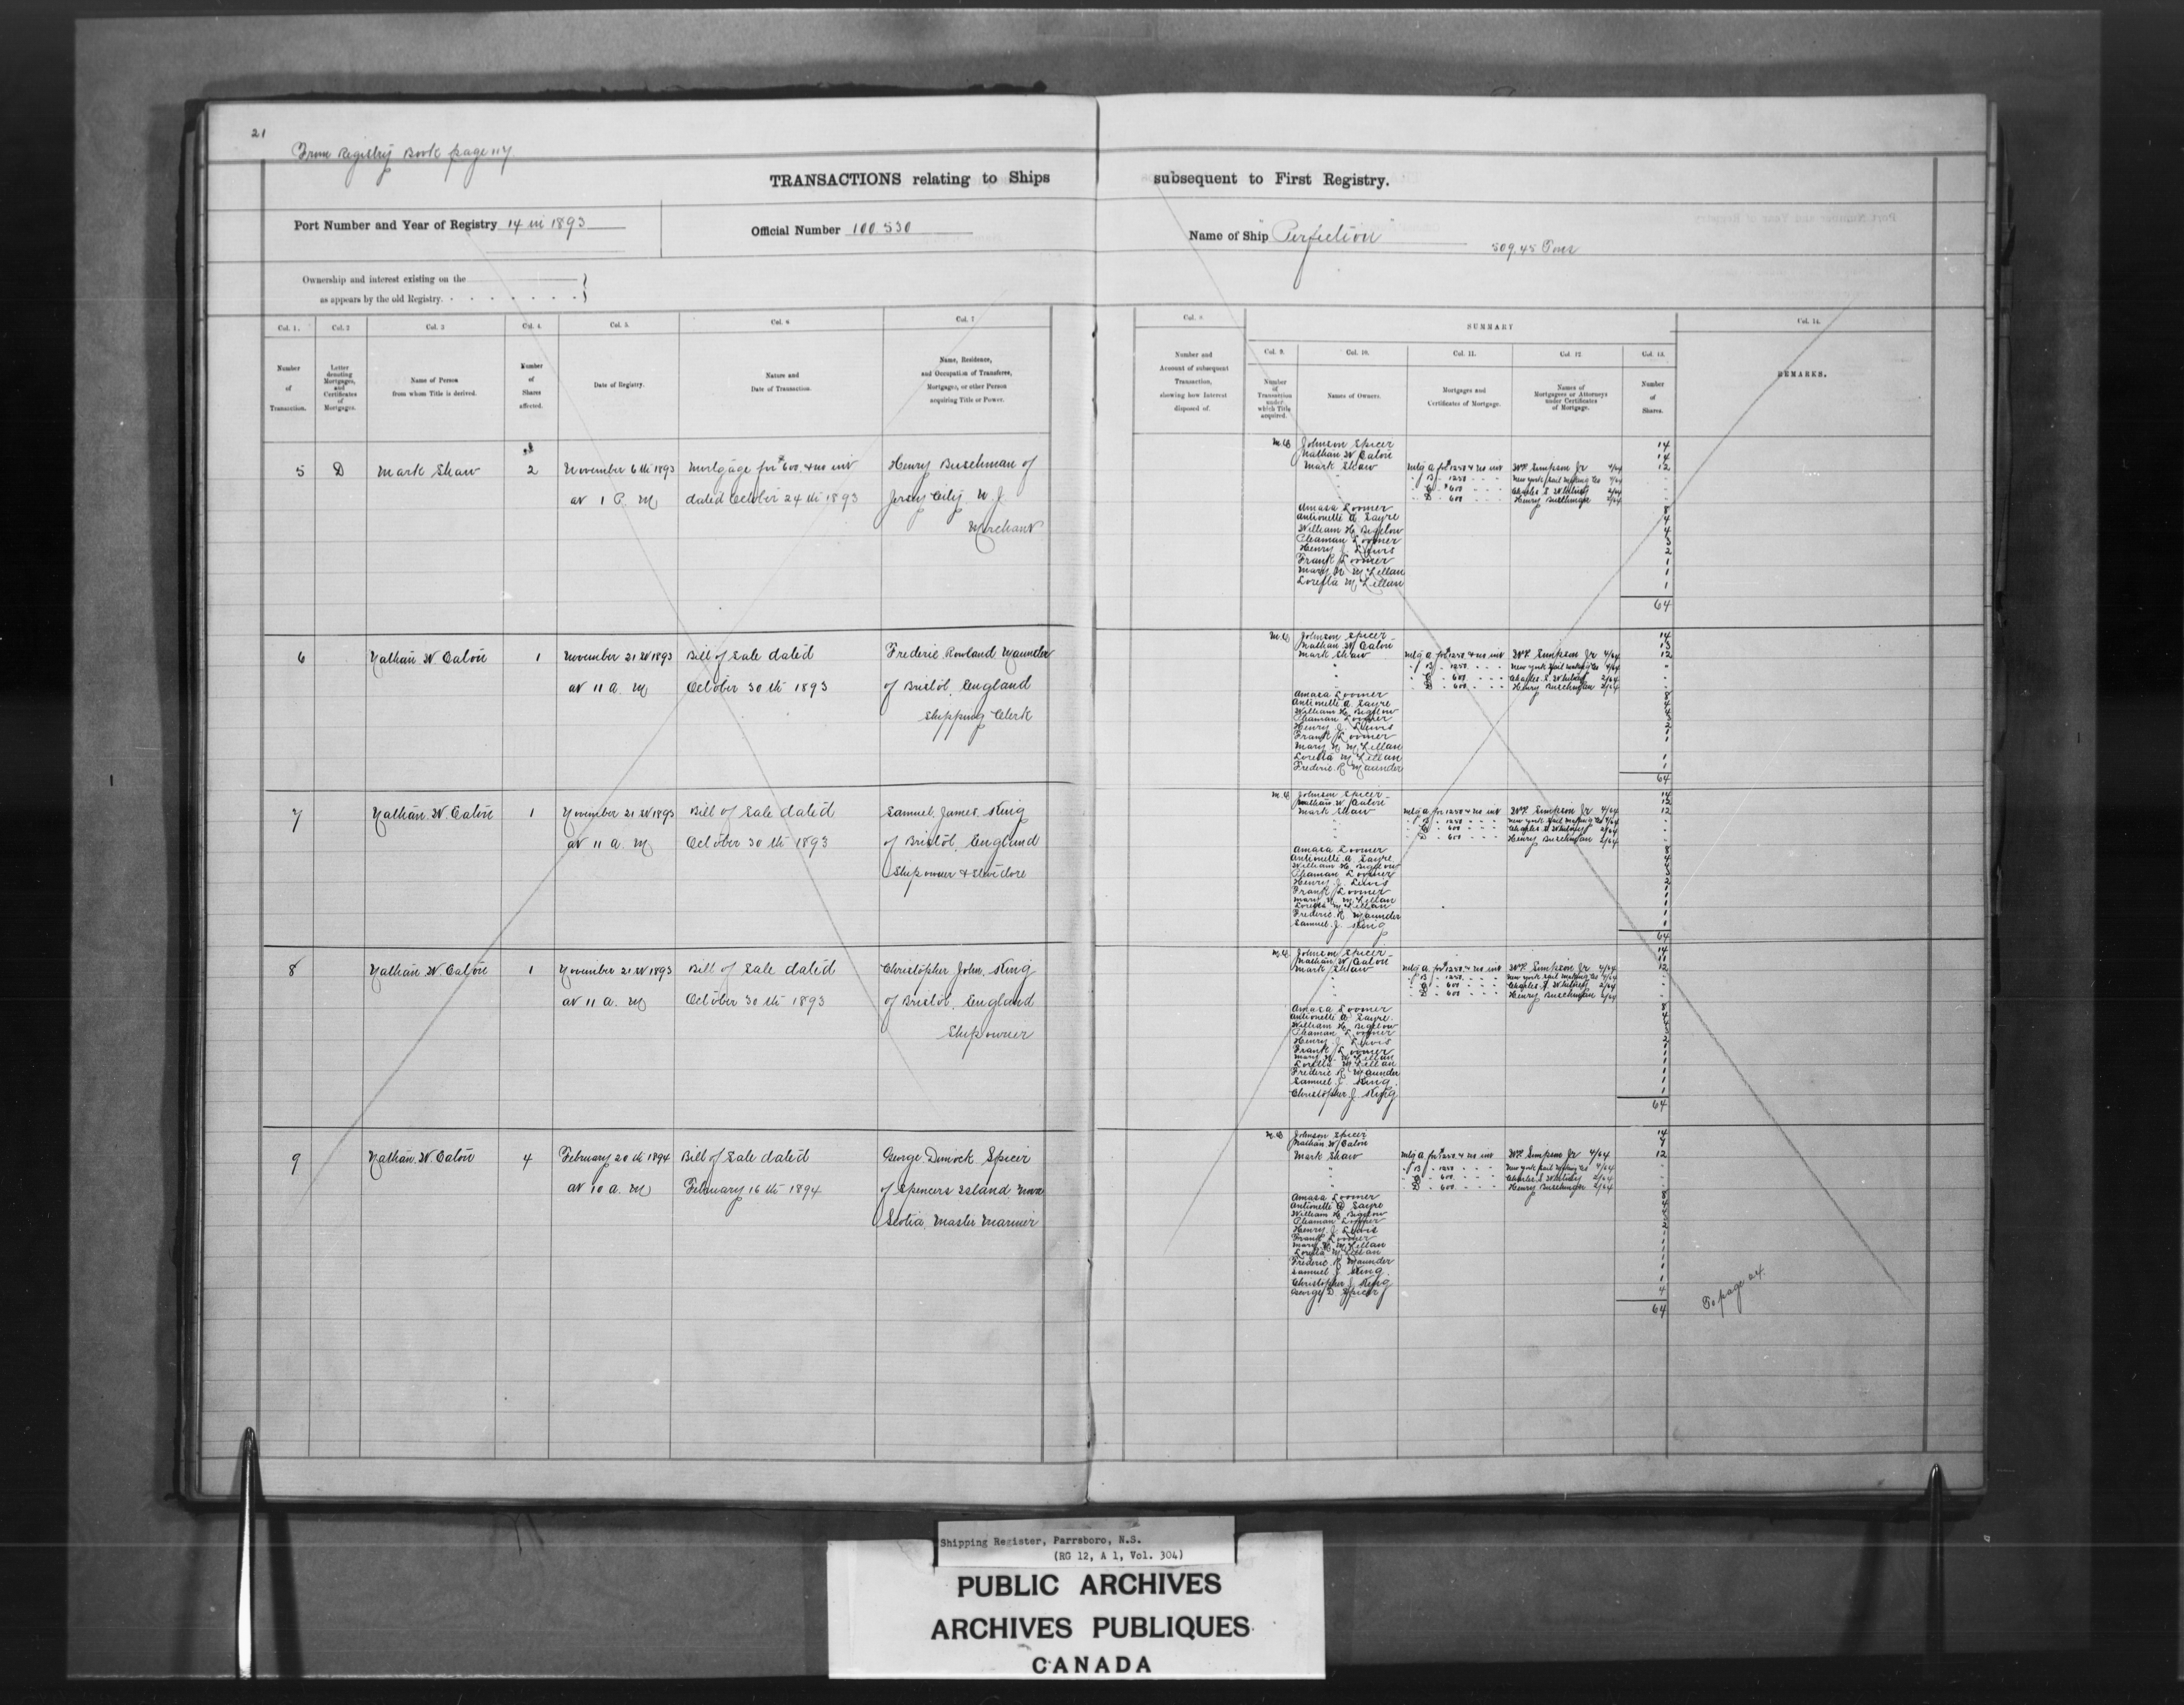 21
From Registry Book page 117
TRANSACTIONS relating to Ships subsequent to First Registry.
Port Number and Year of Registry 14 in 1893
Official Number 100 530
Name of Ship "Perfection"
509.45 Tons
Ownership and interest existing on the
as appears by the old Registry.
Col. 1. Col. 2 Col. 3 Col. 4. Col. 5. Col. 6 Col. 7
Number of Transaction.
Letter denoting Mortgages, and Certificates of Mortgages.
Name of Person from whom Title is derived.
Number of Shares affected.
Date of Registry.
Nature and Date of Transaction.
Name, Residence, and Occupation of Transferee, Mortgagee, or other Person acquiring Title or Power.
Col. 8.
Number and Account of subsequent Transaction, showing how Interest disposed of.
SUMMARY
Col. 9. Col. 10. Col. 11. Col. 12 Col. 13.
Number of Transaction under which Title acquired.
Names of Owners.
Mortgages and Certificates of Mortgage.
Names of Mortgagees or Attorneys under Certificates of Mortgage.
Number of Shares.
Col. 14.
REMARKS.
5 D Mark Shaw 2 November 6th 1893 Mortgage for $600 & no int Henry Buschman of
at 1 P. M dated October 24th 1893 Jersey City N. J.
Merchant
Johnson Spicer 14
Nathan W Eaton 14
Mark Shaw Mtg A for $1250 & no int Wm Simpson Jr 4/64 12
" B " 1250 New York Sail Making Co 4/64
" C " $600 Charles S Whitney 2/64
" D " 600 Henry Buschman 2/64
Amasa Loomer 8
Antionette A Sayre 4
William H. Bigelow 4
Cleaman Loomer 3
Henry J. Lewis 2
Frank Loomer 1
Mary N McLellan 1
Loretta McLellan 1
64
6 Nathan W. Eaton 1 November 21st 1893 Bill of Sale dated Frederic Rowland Maunder
at 11 a. m October 30th 1893 of Bristol, England
Shipping Clerk
Johnson Spicer 14
Nathan W Eaton 13
Mark Shaw Mtg A for $1250 & no int Wm Simpson Jr 4/64 12
" B " 1250 New York Sail Making Co 4/64
" C " 600 Charles S. Whitney 2/64
" D " 600 Henry Buschman 2/64
Amasa Loomer 8
Antionette A. Sayre 4
William H. Bigelow 4
Cleaman Loomer 3
Henry J. Lewis 2
Frank Loomer 1
Mary N McLellan 1
Loretta McLellan 1
Frederic R Maunder 1
64
7 Nathan W. Eaton 1 November 21st 1893 Bill of Sale dated Samuel James King
at 11 a. m October 30th 1893 of Bristol, England
Ship owner & Stevedore
Johnson Spicer 14
Nathan W Eaton 12
Mark Shaw Mtg A for 1250 & no int Wm Simpson Jr 4/64 12
" B " 1250 New York Sail Making Co 4/64
" C " 600 Charles S Whitney 2/64
" D " 600 Henry Buschman 2/64
Amasa Loomer 8
Antionette A Sayre 4
William H. Bigelow 4
Cleaman Loomer 3
Henry J. Lewis 2
Frank Loomer 1
Mary N McLellan 1
Loretta McLellan 1
Frederic R Maunder 1
Samuel J. King 1
64
8 Nathan W. Eaton 1 November 21st 1893 Bill of Sale dated Christopher John King
at 11 a. m October 30th 1893 of Bristol, England
Ship owner
Johnson Spicer 14
Nathan W Eaton 11
Mark Shaw Mtg A for $1250 & no int Wm Simpson Jr 4/64 12
" B " 1250 New York Sail Making Co 4/64
" C " 600 Charles S. Whitney 2/64
" D " 600 Henry Buschman 2/64
Amasa Loomer 8
Antionette A Sayre 4
William H Bigelow 4
Cleaman Loomer 3
Henry J. Lewis 2
Frank Loomer 1
Mary N. McLellan 1
Loretta McLellan 1
Frederic R Maunder 1
Samuel J. King 1
Christopher J King 1
64
9 Nathan W. Eaton 4 February 20th 1894 Bill of Sale dated George Dimock Spicer
at 10 a. m February 16th 1894 of Spencers Island Nova
Scotia, Master Mariner
Johnson Spicer 14
Nathan W Eaton 7
Mark Shaw Mtg A for $1250 & no int Wm Simpson Jr 4/64 12
" B " 1250 New York Sail Making Co 4/64
" C " 600 Charles S Whitney 2/64
" D " 600 Henry Buschman 2/64
Amasa Loomer 8
Antionette A Sayre 4
William H. Bigelow 4
Cleaman Loomer 3
Henry J. Lewis 2
Frank Loomer 1
Mary N McLellan 1
Loretta McLellan 1
Frederic R Maunder 1
Samuel J. King 1
Christopher J. King 1
George D Spicer 4
64
To page 24.
Shipping Register, Parrsboro, N.S.
(RG 12, A 1, Vol. 304)
PUBLIC ARCHIVES
ARCHIVES PUBLIQUES
CANADA